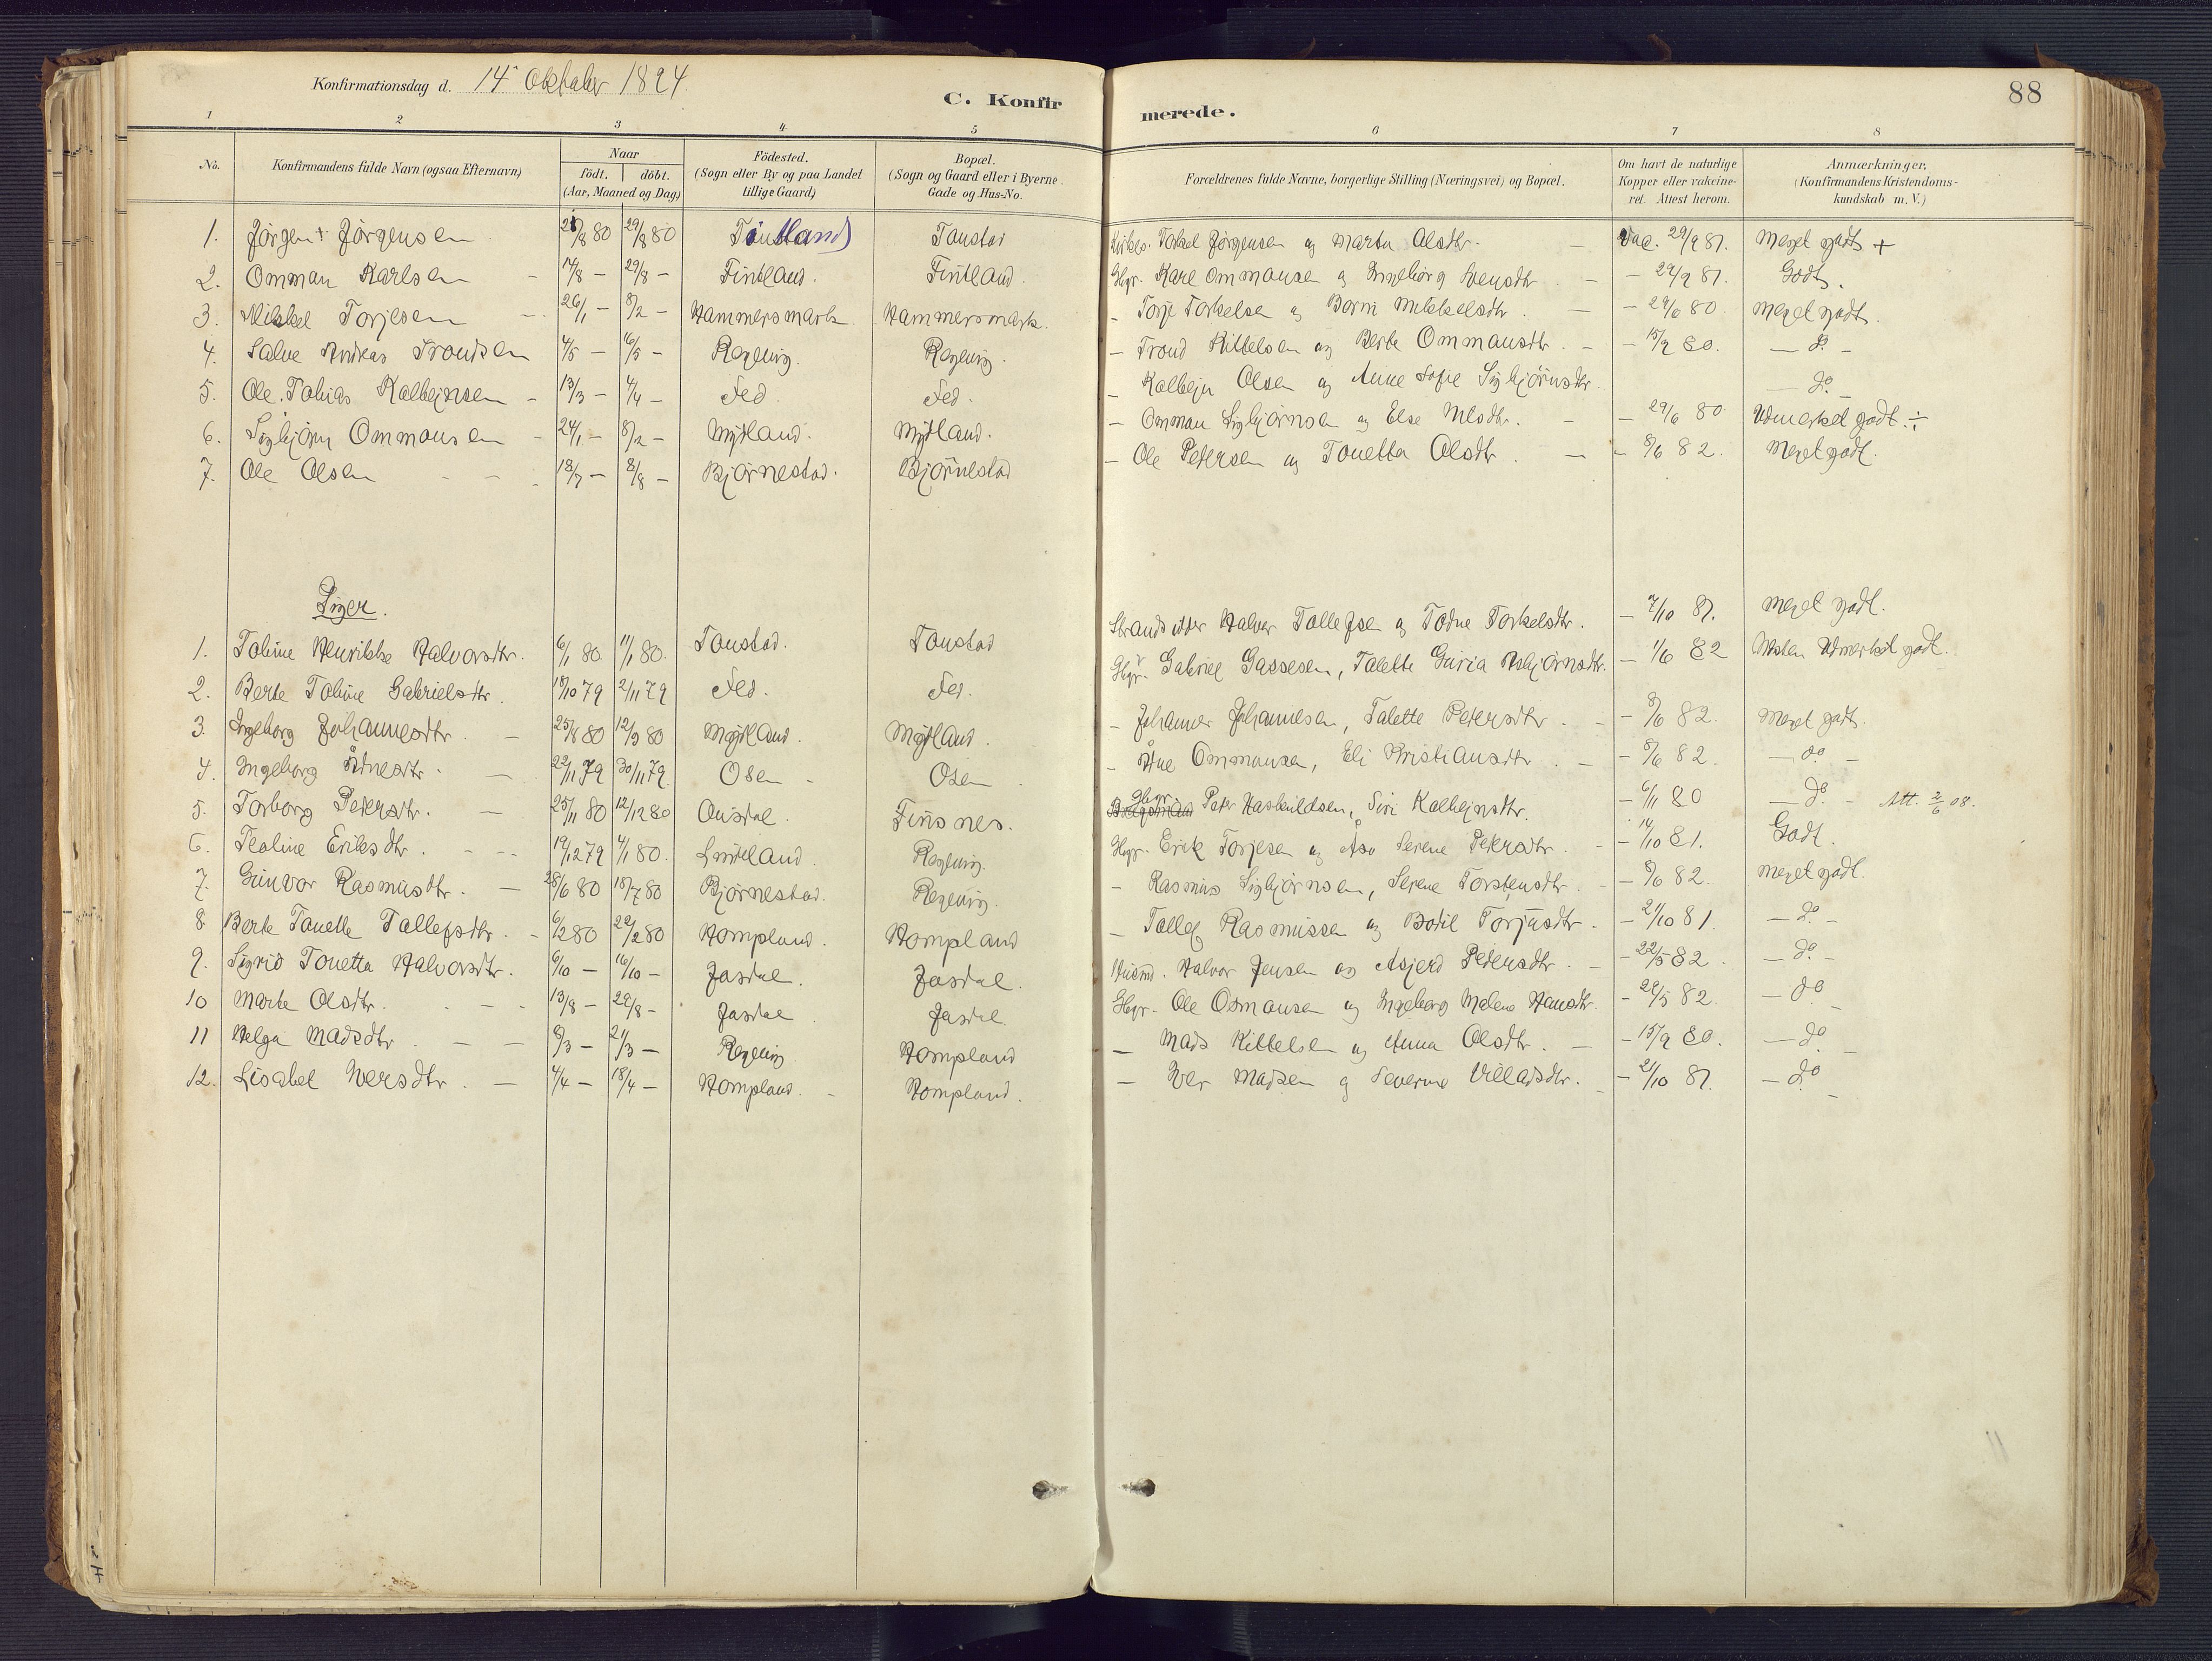 Konfirmationsdag d. 14de Oktober 1894.
C. Konfir
merede.
88
1 2 3 4 5 6 7 8
No. Konfirmandens fulde Navn (ogsaa Efternavn) Naar födt. döbt. (Aar, Maaned og Dag) Födested. (Sogn eller By og paa Landet tillige Gaard) Bopæl. (Sogn og Gaard eller i Byerne Gade og Hus-No. Forældrenes fulde Navne, borgerlige Stilling (Næringsvei) og Bopæl. Om havt de naturlige Kopper eller vakcineret. Attest herom. Anmærkninger, (Konfirmandens Kristendomskundskab m. V.)
1. Jørgen + Jørgensen 8 80 29/8 80 Taustad Torkel Jørgensen og Marta Olsdtr. Vac. 29/9 81. Meget godt +
2. Omman Karlsen 14/8 — 29/8 — Fintland. Fintland. Gbr. Karl Ommansen og Ingeborg Svensdtr — 29/9 81. Godt.
3. Mikkel Torjesen 26/1 — 8/2 — Hammersmark Hammersmark. — Torje Torkelsen og Borni Mikkelsdtr. — 29/6 80 Meget godt.
4. Salve Andreas Trondsen 4/5 — 16/5 — Regevig. Regevig. — Trond Kittelsen og Berte Ommansdtr. — 15/9 80. — do —
5. Ole Tobias Kalleinsen — 13/3 — 4/4 — Fed Fed. — Kallein Olsen og Anne Sofie Sigbjørnsdtr. — do —
6. Sigbjørn Ommansen 24/1 — 8/2 — Mydland. Mydland. — Omman Sigbjørnsen og Else Nilsdtr. — 29/6 80 Udmerket godt ÷
7. Ole Olsen 18/7 — 8/8 — Bjørnestad. Bjørnestad — Ole Petersen og Tonetta Olsdtr. — 8/6 82. Meget godt.
Piger.
1. Toline Henrikke Halvorsdtr. 6/1 80. 11/1 80. Taustad. Taustad Strandsidder Halvor Tollefsen og Todne Torkelsdtr. — 7/10 81. Meget godt.
2. Berte Toline Gabrielsdtr. 18/10 79 2/11 79 Fed. Fed. Gbr. Gabriel Gassesen, Talette Guria Asbjørnsdtr. — 1/6 82 Næsten Udmerket godt.
3. Ingeborg Johannesdtr. — 25/8 80 12/9 80 Mydland. Mydland. — Johannes Johannesen, Talette Petersdtr. — 8/6 82. Meget godt.
4. Ingeborg Ådnesdtr. — 22/11 79 30/11 79. Osen — Osen — Ådne Ommansen, Eli Kristiansdtr. — 8/6 82. — do —
5. Torborg Petersdtr. — 25/11 80 12/12 80 Ousdal. Finsnes. Gbr. Peter Haskuldsen, Siri Kalleinsdtr. — 6/11 80 — do — Att. 2/6 08.
6. Tealine Eriksdtr. — 19/12 79 4/1 80. Lindland. Regevig. Gbr. Erik Torjesen og Åsa Serene Petersdtr. — 14/10 81. Godt.
7. Gunvor Rasmusdtr. — 28/6 80 18/7 80 Bjørnestad. Regevig. — Rasmus Sigbjørnsen, Serene Torstensdtr. — 8/6 82. Meget godt.
8 Berte Tonette Tallefsdtr. — 6/2 80 22/2 80 Hompland. Hompland — Tallef Rasmussen og Bodil Torjusdtr. — 21/10 81. — do —
9. Sigrid Tonetta Halvorsdtr. 6/10 — 16/10 — Jasdal. Jasdal. Husmd. Halvor Jensen og Asjerd Pedersdtr. — 22/5 82. — do —
10 Marta Olsdtr. 13/8 — 29/8 — Jasdal. Jasdal. Gbr. Ole Osmansen og Ingeborg Malene Hansdtr. — 22/5 82. — do —
11 Helga Madsdtr. — 8/3 — 21/3 — Regevig Hompland — Mads Kittelsen og Anna Olsdtr. — 15/9 80. — do —
12. Lisabet Iversdtr. — 4/4 — 18/4 — Hompland. Hompland. — Iver Madsen og Severine Villadsdtr. — 21/10 81. — do —